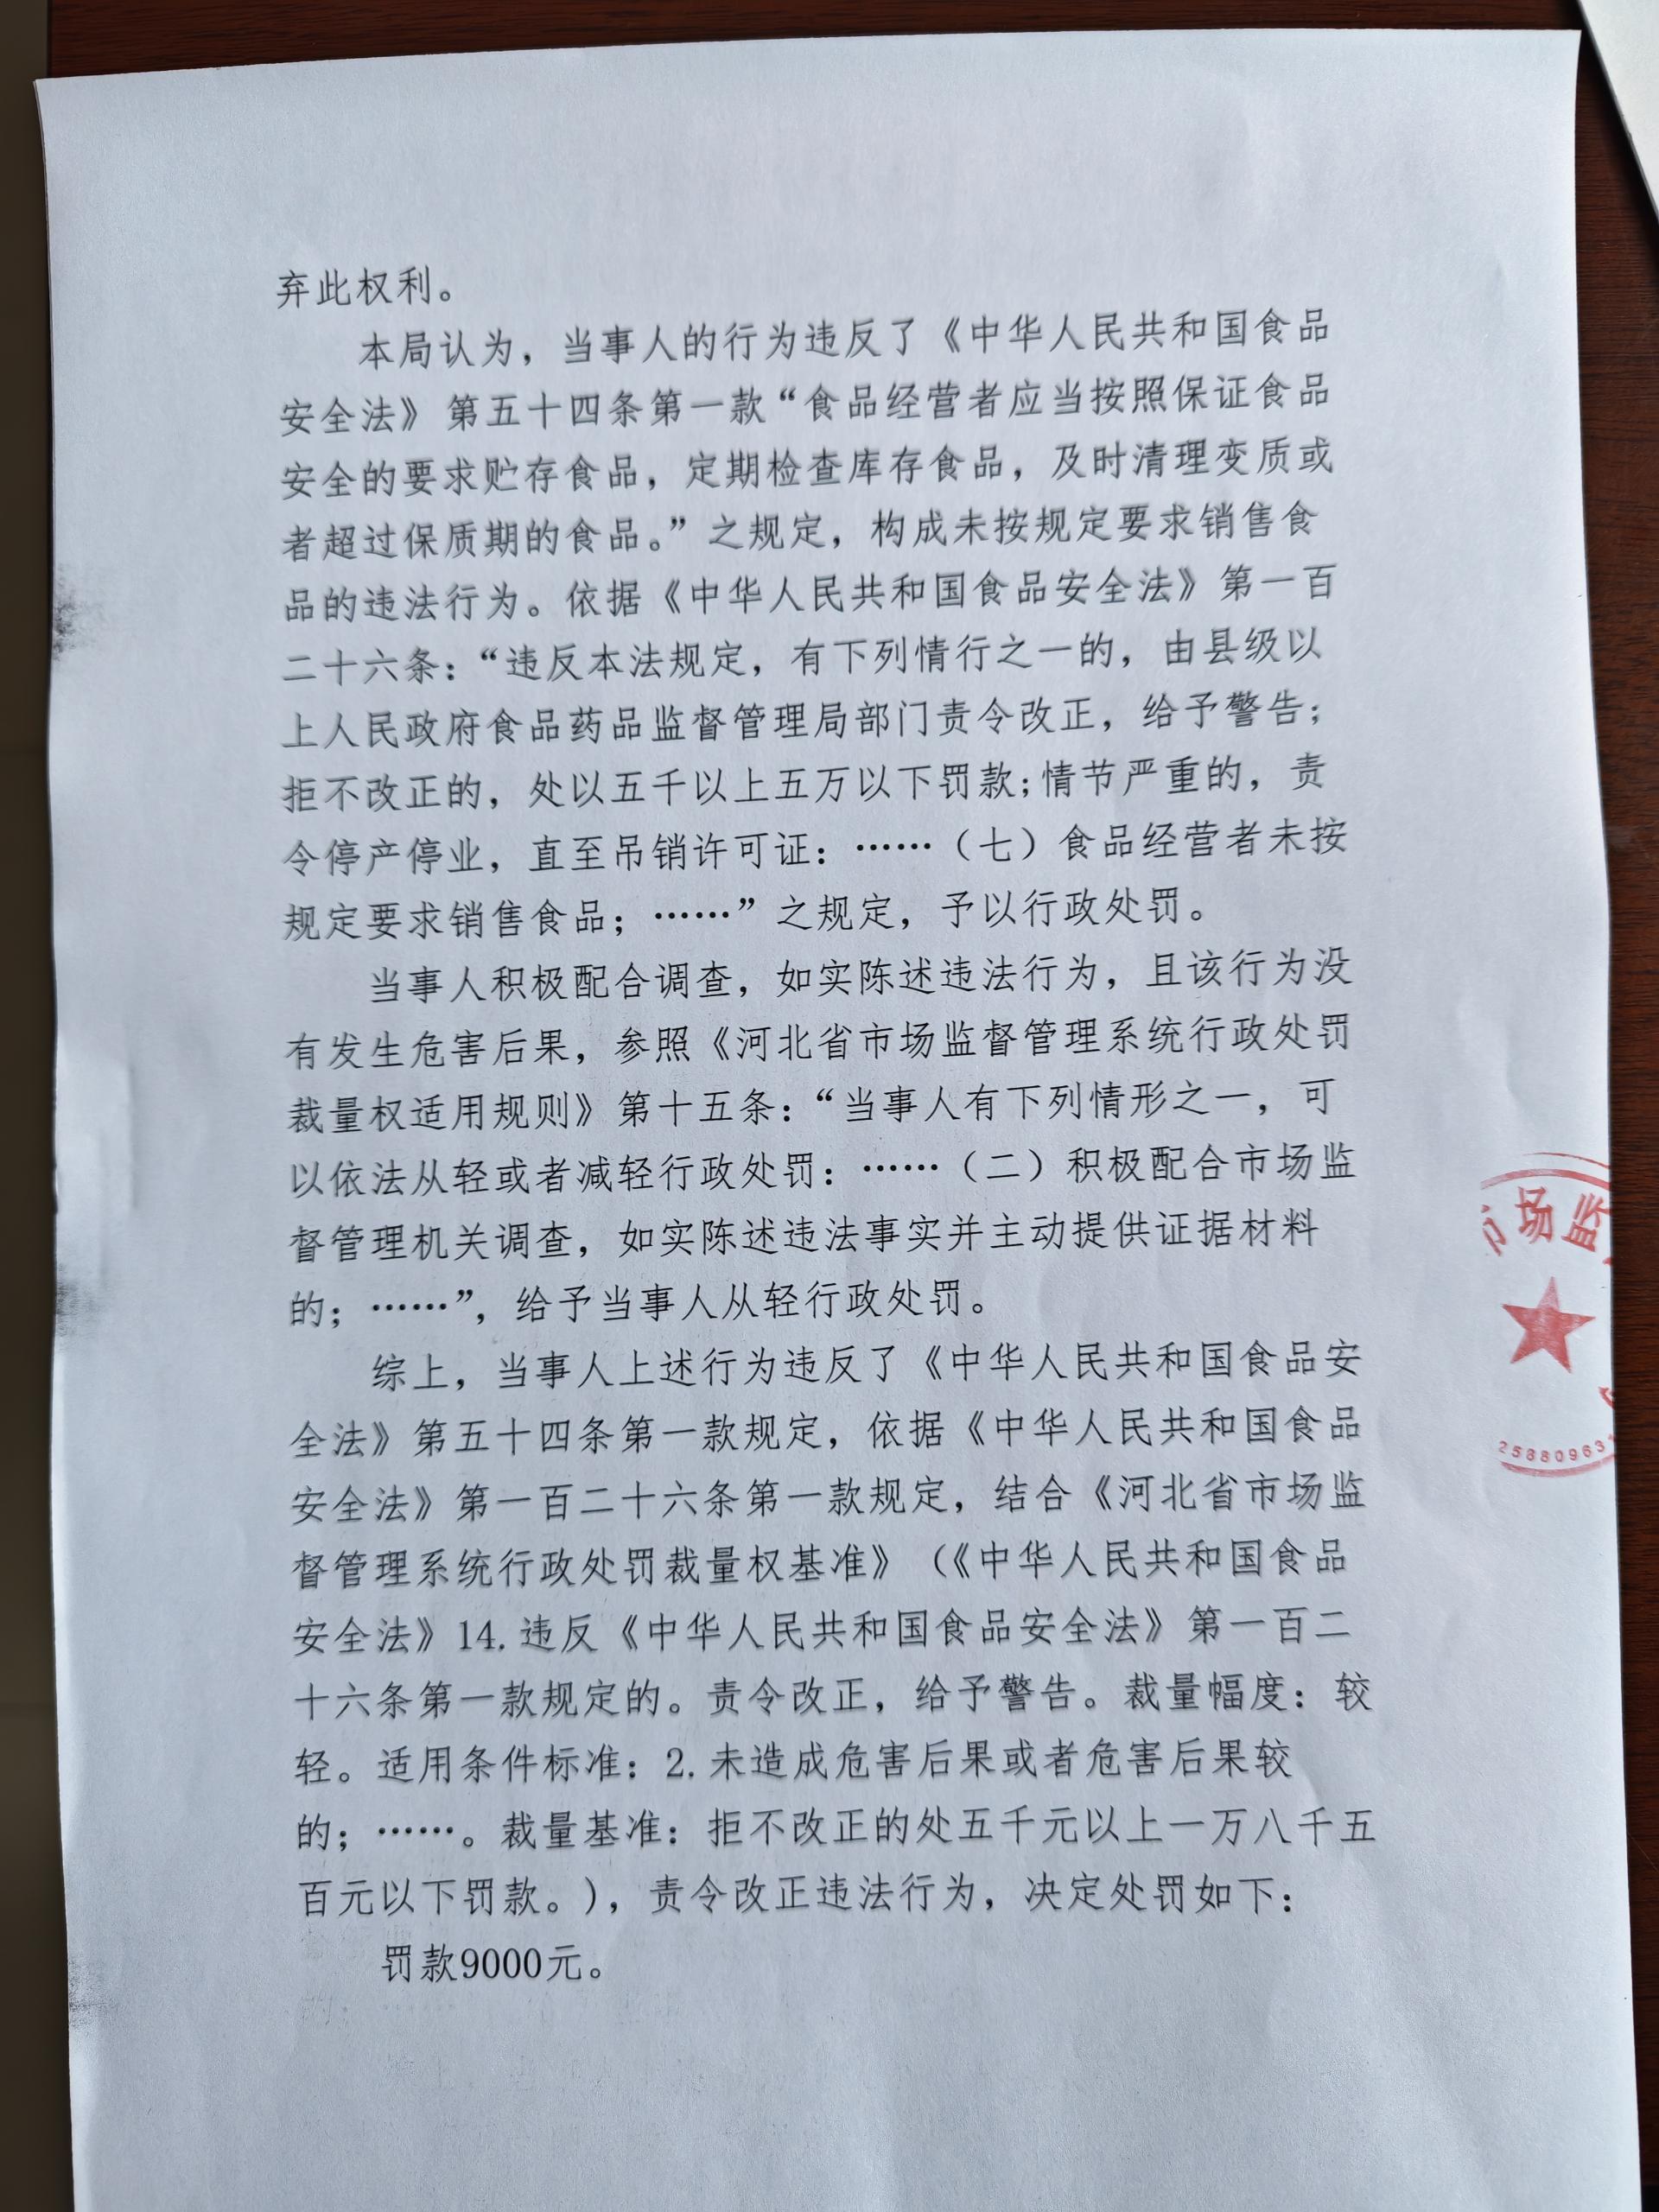 弃此权利。
本局认为，当事人的行为违反了《中华人民共和国食品
安全法》第五十四条第一款“食品经营者应当按照保证食品
安全的要求贮存食品，定期检查库存食品，及时清理变质或
者超过保质期的食品。”之规定，构成未按规定要求销售食
品的违法行为。依据《中华人民共和国食品安全法》第一百
二十六条：“违反本法规定，有下列情行之一的，由县级以
上人民政府食品药品监督管理局部门责令改正，给予警告；
拒不改正的，处以五千以上五万以下罚款;情节严重的，责
令停产停业，直至吊销许可证：……（七）食品经营者未按
规定要求销售食品；……”之规定，予以行政处罚。
当事人积极配合调查，如实陈述违法行为，且该行为没
有发生危害后果，参照《河北省市场监督管理系统行政处罚
裁量权适用规则》第十五条：“当事人有下列情形之一，可
以依法从轻或者减轻行政处罚：……（二）积极配合市场监
督管理机关调查，如实陈述违法事实并主动提供证据材料
的；……”，给予当事人从轻行政处罚。
综上，当事人上述行为违反了《中华人民共和国食品安
全法》第五十四条第一款规定，依据《中华人民共和国食品
安全法》第一百二十六条第一款规定，结合《河北省市场监
督管理系统行政处罚裁量权基准》（《中华人民共和国食品
安全法》14.违反《中华人民共和国食品安全法》第一百二
十六条第一款规定的。责令改正，给予警告。裁量幅度：较
轻。适用条件标准：2.未造成危害后果或者危害后果较
的；……。裁量基准：拒不改正的处五千元以上一万八千五
百元以下罚款。），责令改正违法行为，决定处罚如下：
罚款9000元。
市场监
25880963